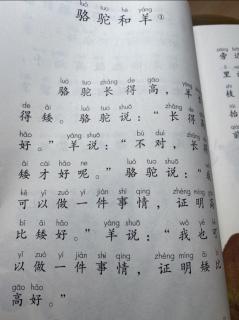 luò tuo hé yáng
骆驼和羊①
luò tuo zhǎng de gāo yáng
骆驼长得高,羊
de ǎi luò tuo shuō zhǎng
得矮。骆驼说:“长
hǎo yáng shuō bú duì zhǎng
好。”羊说:“不对,长
ǎi cái hǎo ne luò tuo shuō
矮才好呢。”骆驼说:
kě yǐ zuò yí jiàn shì qing zhèng míng
可以做一件事情,证明
bǐ ǎi hǎo yáng shuō wǒ yě kě
比矮好。”羊说:“我也可
yǐ zuò yí jiàn shì qing zhèng míng ǎi bǐ
以做一件事情,证明矮比
gāo hǎo
高好。”
旁
里
枝
抬